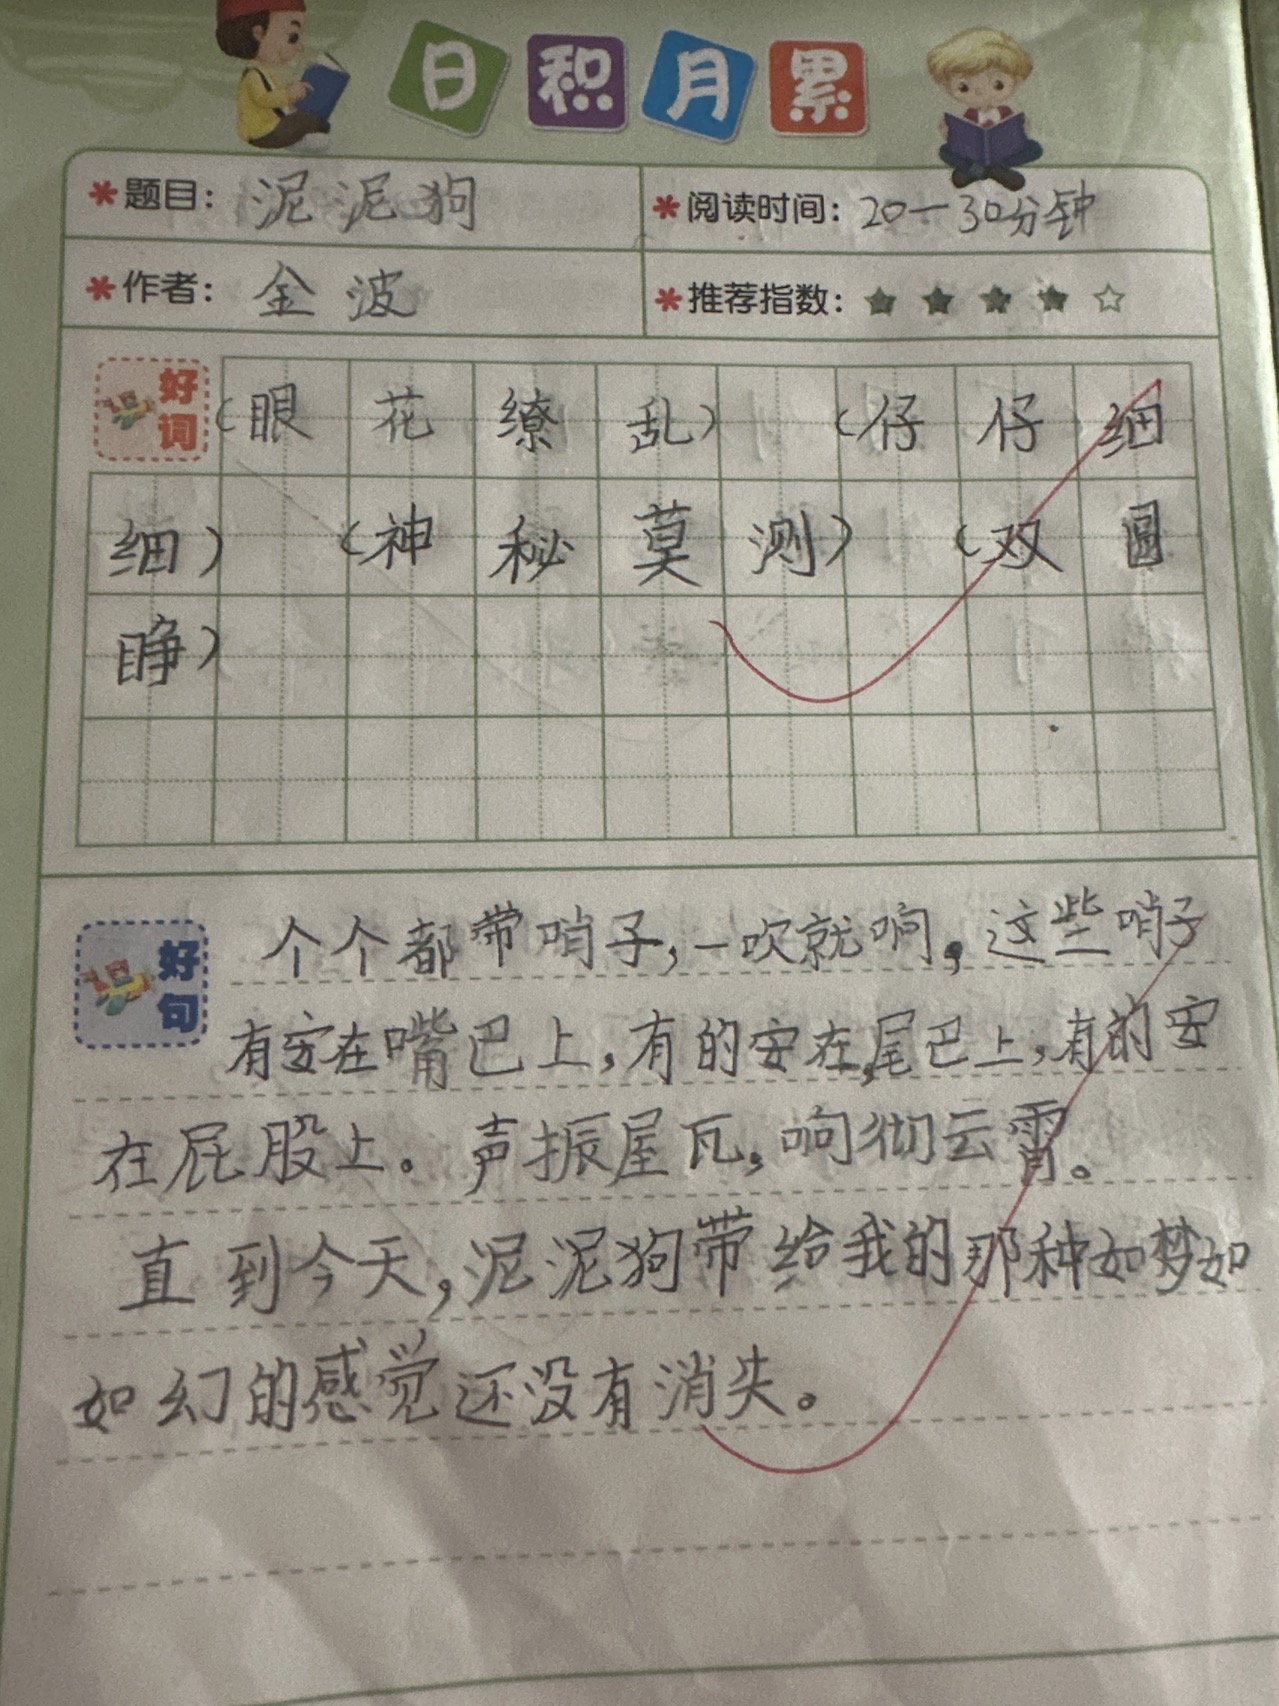 日积月累
*题目：泥泥狗 *阅读时间：20一30分钟
*作者：金波 *推荐指数：★★★★☆
好词
（眼花缭乱）（仔仔细
细）（神秘莫测）（双圆
睁）
好句
个个都带哨子，一吹就响，这些哨子
有安在嘴巴上，有的安在尾巴上，有的安
在屁股上。声振屋瓦，响彻云霄。
直到今天，泥泥狗带给我的那种如梦如
如幻的感觉还没有消失。